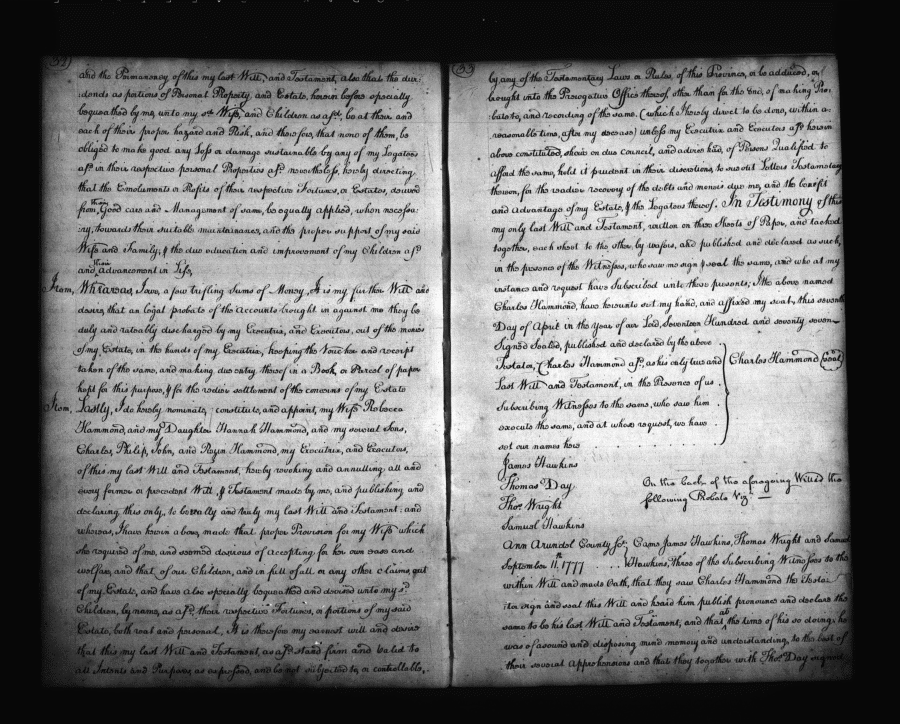 32)
and the Permanency of this my last Will, and Testament, also that the divi:
:dends as portions of Personal Property, and Estate, herein before specially
bequeathed by me, unto my sd. Wife, and Children as afsd. be at their and
each of their proper hazard and Risk, and therefore, that none of them, be
obliged to make good any Loss or damage sustainable by any of my Legatees
afsd. in their respective personal Properties afsd. nevertheless, hereby directing
that the Emoluments or Profits of their respective Fortunes, or Estates, derived
from, their Good care and Management of same, be equally applied, when necessa:
:ry, towards their suitable maintainance, and the proper support of my said
Wife and Family, & the due education and improvement of my Children afsd.
and, their advancement in Life,
Item, Whereas, I owe, a few trifling Sums of Money, It is my further Will and
desire, that on legal probate of the Accounts brought in against me they be
duly and rateably discharged by my Executrix, and Executors, out of the monies
of my Estate, in the hands of my Executrix, keeping the Voucher and receipt
taken of the same, and making due entry thereof in a Book, or Parcel of paper
kept for this purpose, & for the readier settlement of the concerns of my Estate
Item, Lastly, I do hereby nominate, constitute, and appoint, my Wife Rebecca
Hammond, and my Daughter Hannah Hammond, and my several Sons,
Charles, Philip, John, and Rezin Hammond, my Executrix, and Executors,
of this my last Will and Testament, hereby revoking and annulling, all and
every former or precedent Will, & Testament made by me, and publishing and
declaring this only, to be really and truly my last Will and Testament: and
whereas, I have herein above, made that proper Provision for my Wife which
she required of me, and seemed desirous of accepting, for her own ease and
welfare, and that of our Children, and in full of all or any other claims, out
of my Estate, and have also specially bequeathed and devised unto my sd.
Children, by name, as afsd. their respective Fortunes, or portions of my said
Estate, both real and personal, It is therefore my earnest will and desire
that this my last Will and Testament, as afsd. stand firm and Valid to
all Intents and Purposes, as expressed, and be not subjected to, or controllable,
(33
by any of the Testamentary Laws or Rules, of this Province, or be adduced, or,
brought into the Prerogative Office thereof, other than for the End, of making Pro:
:bate to, and recording of the same. (which I hereby direct to be done, within a
reasonable time, after my decease) unless my Executrix and Executors afsd. herein
above constituted, shou'd on due Council, and advice had, of Persons Qualified to
afford the same, hold it prudent in their discretions, to sue out Letters Testamentary
thereon, for the readier recovery of the debts and monies due me, and the benefit
and advantage of my Estate, & the Legatees thereof. In Testimony of this
my only last Will and Testament, written on three Sheets of Paper, and tacked
together, each sheet to the other, by wafers, and published and declared as such,
in the presence of the Witnesses, who saw me sign & seal the same, and who at my
instance and request have Subscribed unto these presents; I the above named
Charles Hammond, have hereunto set my hand, and affixed my seal, this seventh
Day of April in the Year of our Lord, Seventeen Hundred and seventy seven
Signed Sealed, published and declared by the above
Testator, Charles Hammond afsd. as his only true and
Last Will and Testament, in the Presence of us
Subscribing Witnesses to the same, who saw him
execute the same, and at whose request, we have
set our names here
Charles Hammond (seal)
James Hawkins
Thomas Day
Thos. Wright
Samuel Hawkins
On the back of the aforegoing Will is the
following Probate Viz:
Ann Arundel County Sct. Came James Hawkins, Thomas Wright and Samuel
September 11th 1777 .... Hawkins, three of the Subscribing Witnesses to the
within Will and made Oath, that they saw Charles Hammond the Testa:
:tor sign and seal this Will and heard him publish pronounce and declare the
same to be his last Will and Testament; and that at the time of his so doing he
was of a sound and disposing mind memory and understanding, to the best of
their several Apprehensions and that they together with Thos. Day signed